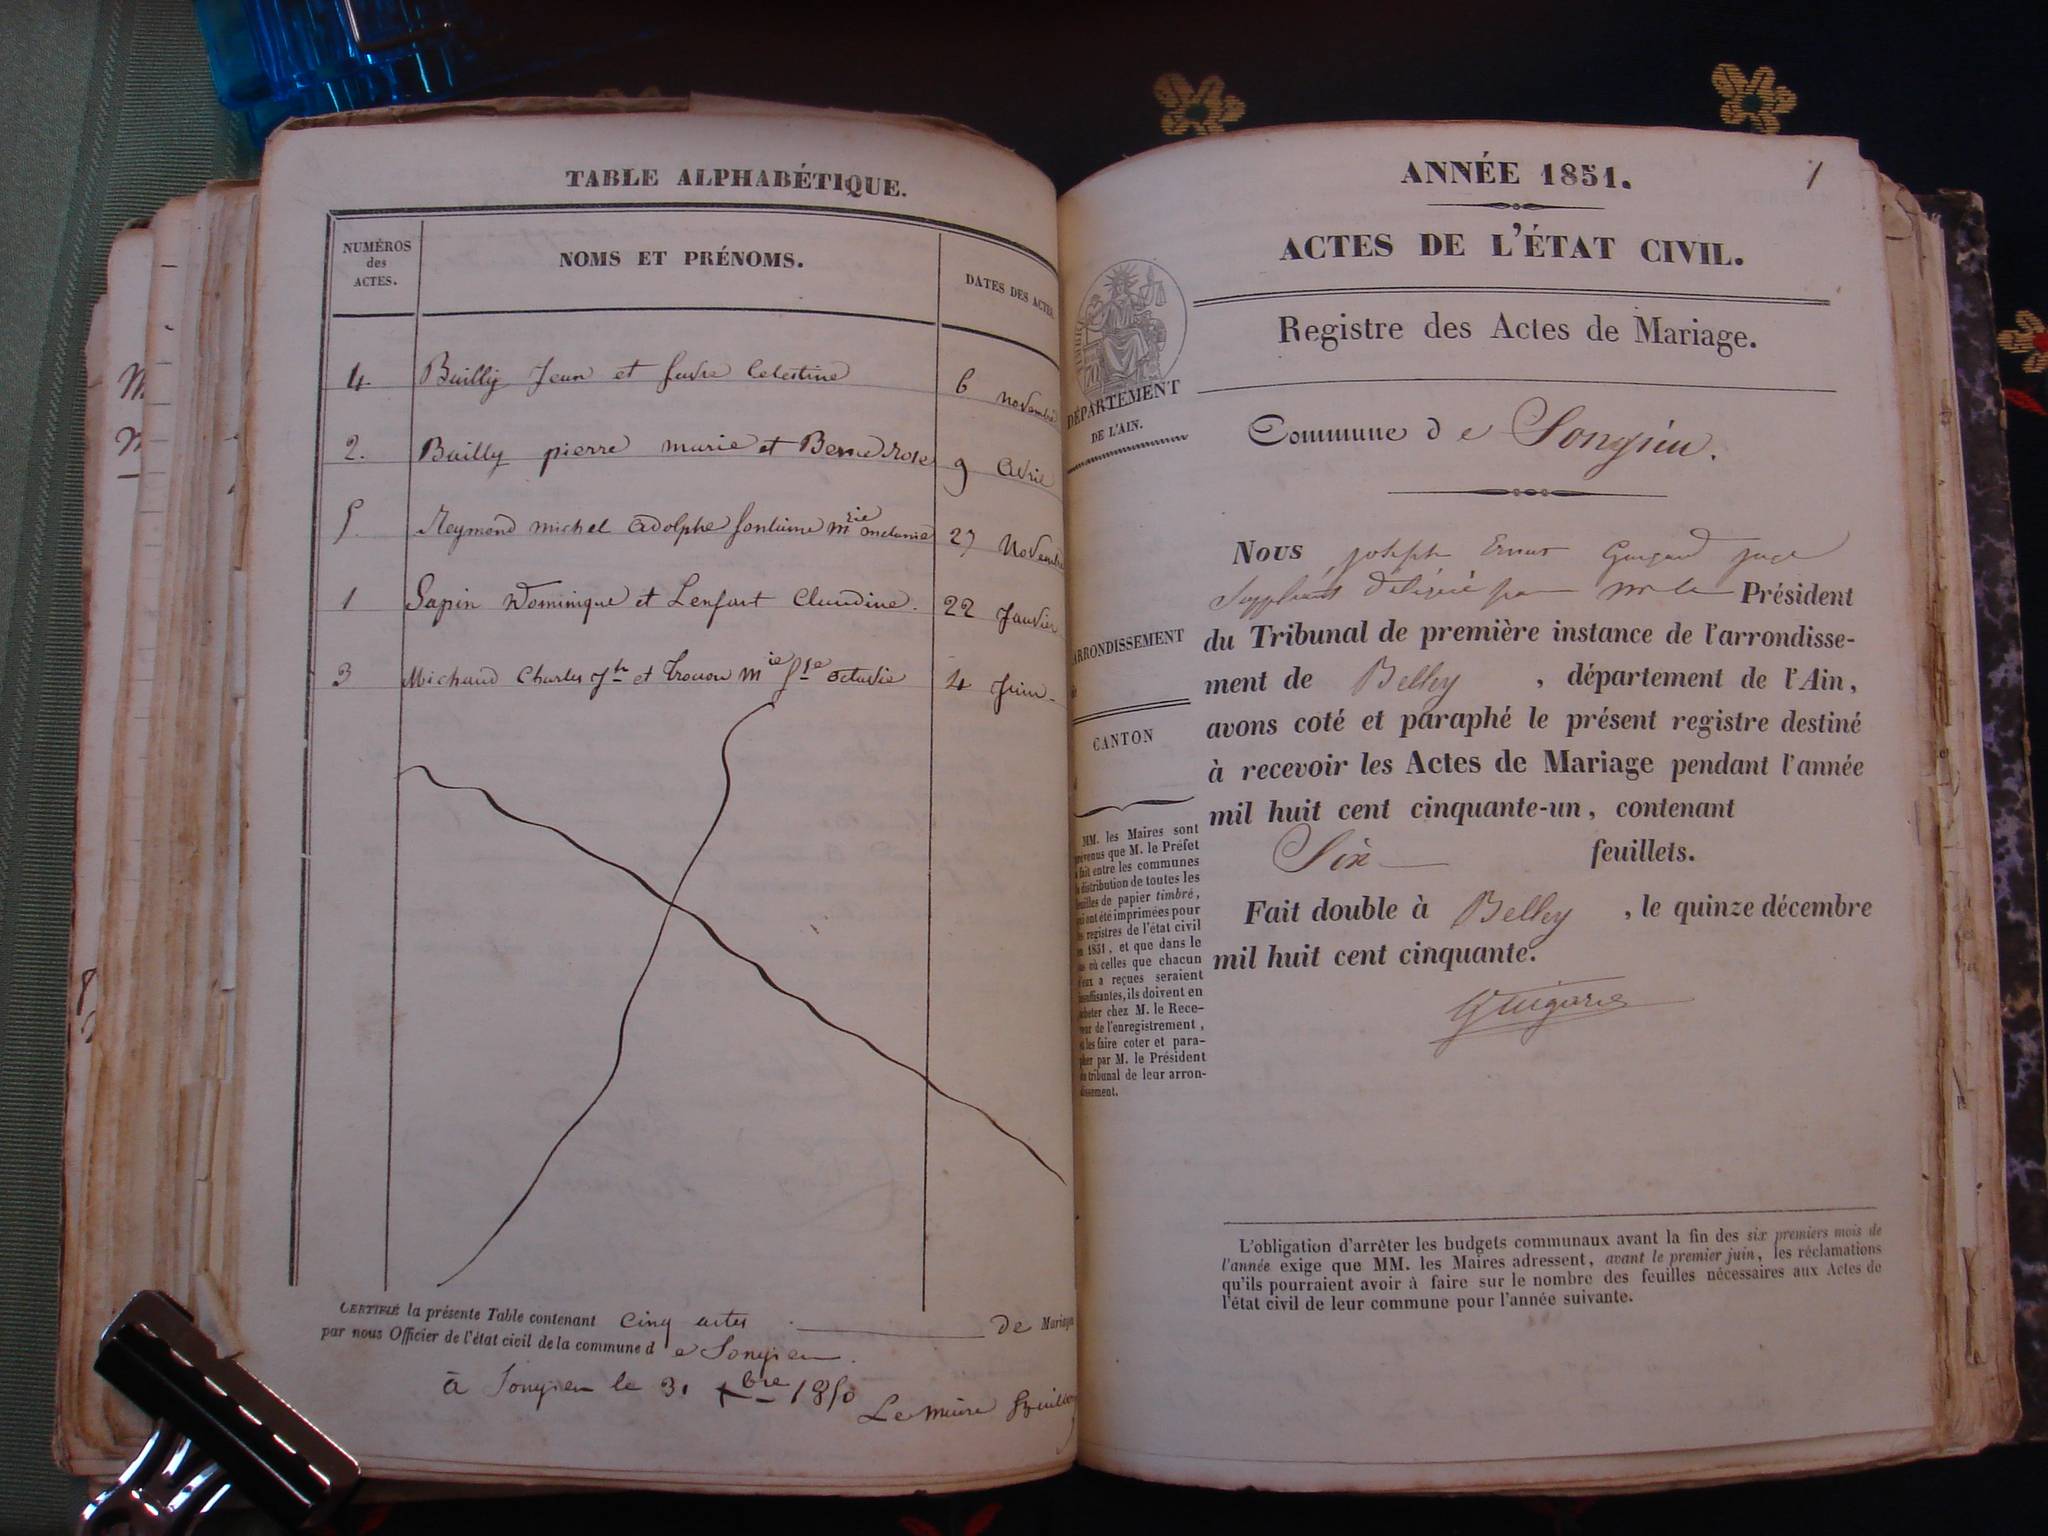 TABLE ALPHABÉTIQUE.
NUMÉROS
des
ACTES.
NOMS ET PRÉNOMS.
DATES DES ACTES.
4. Bailly Jean et favre Celestine 6 novembre
2. Bailly pierre marie et Berne Rose 9 Avril
5. Reymond michel adolphe fontaine mie melanie 27 Novembre
1 Sapin Dominique et Lenfant Claudine. 22 Janvier
3 Michaud Charles Jh et mie fse octavie 4 Juin
CERTIFIÉ la présente Table contenant cinq actes de Mariage
par nous Officier de l'état civil de la commune de Songieu.
à Songieu le 31 xbre 1850
Le maire
1
ANNÉE 1851.
ACTES DE L'ÉTAT CIVIL.
Registre des Actes de Mariage.
DÉPARTEMENT
DE L'AIN.
Commune de Songieu.
ARRONDISSEMENT
CANTON
MM. les Maires sont
prévenus que M. le Préfet
a fait entre les communes
la distribution de toutes les
feuilles de papier timbré,
qui ont été imprimées pour
les registres de l'état civil
en 1851, et que dans le
cas où celles que chacun
d'eux a reçues seraient
insuffisantes, ils doivent en
acheter chez M. le Rece-
veur de l'enregistrement,
et les faire coter et para-
pher par M. le Président
du tribunal de leur arron-
dissement.
Nous joseph juge
Suppléant délégué par mr le Président
du Tribunal de première instance de l'arrondisse-
ment de Belley, département de l'Ain,
avons coté et paraphé le présent registre destiné
à recevoir les Actes de Mariage pendant l'année
mil huit cent cinquante-un, contenant
Six feuillets.
Fait double à Belley, le quinze décembre
mil huit cent cinquante.
L'obligation d'arrêter les budgets communaux avant la fin des six premiers mois de
l'année exige que MM. les Maires adressent, avant le premier juin, les réclamations
qu'ils pourraient avoir à faire sur le nombre des feuilles nécessaires aux Actes de
l'état civil de leur commune pour l'année suivante.